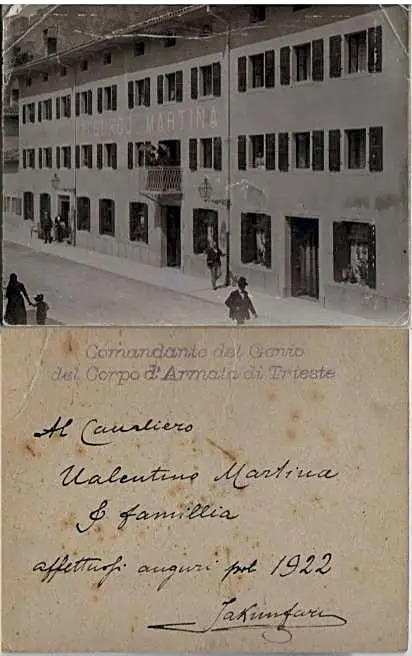 ALBURGO MARTINA
Comandante del Genio
del Corpo d'Armata di Trieste
Al Cavaliero
Valentino Martina
& famillia
affettuosi auguri pel 1922